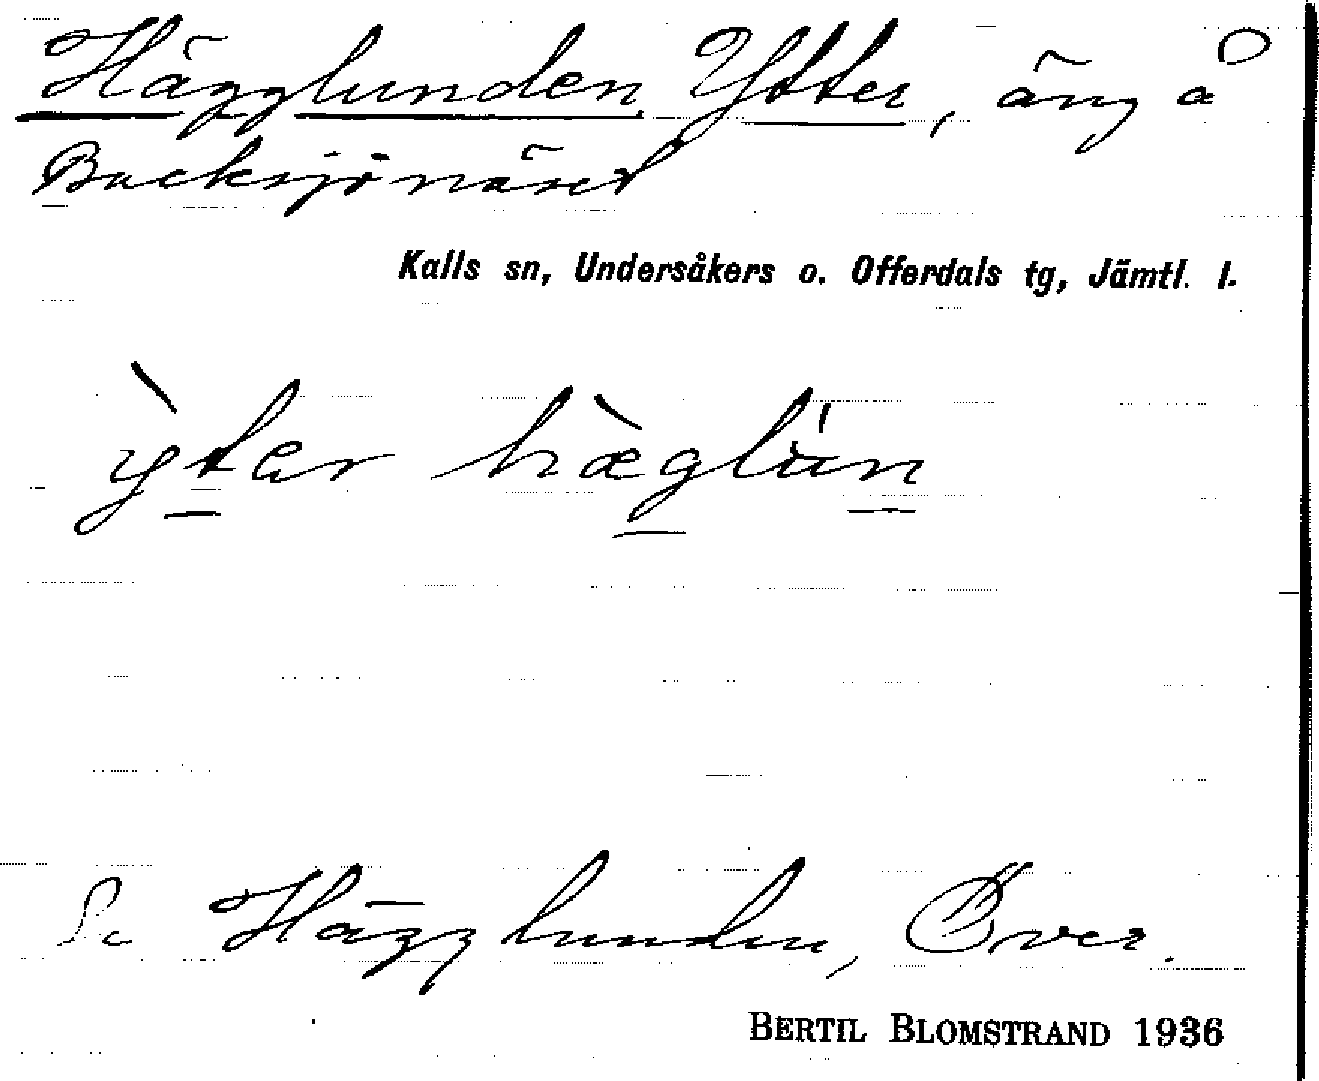 Hägglunden Ytter, äng å
Backsjönäset
Kalls sn, Undersåkers o. Offerdals tg, Jämtl. l.
ỳter hæ̀glún
Se Hägglunden, Över.
BERTIL BLOMSTRAND 1936